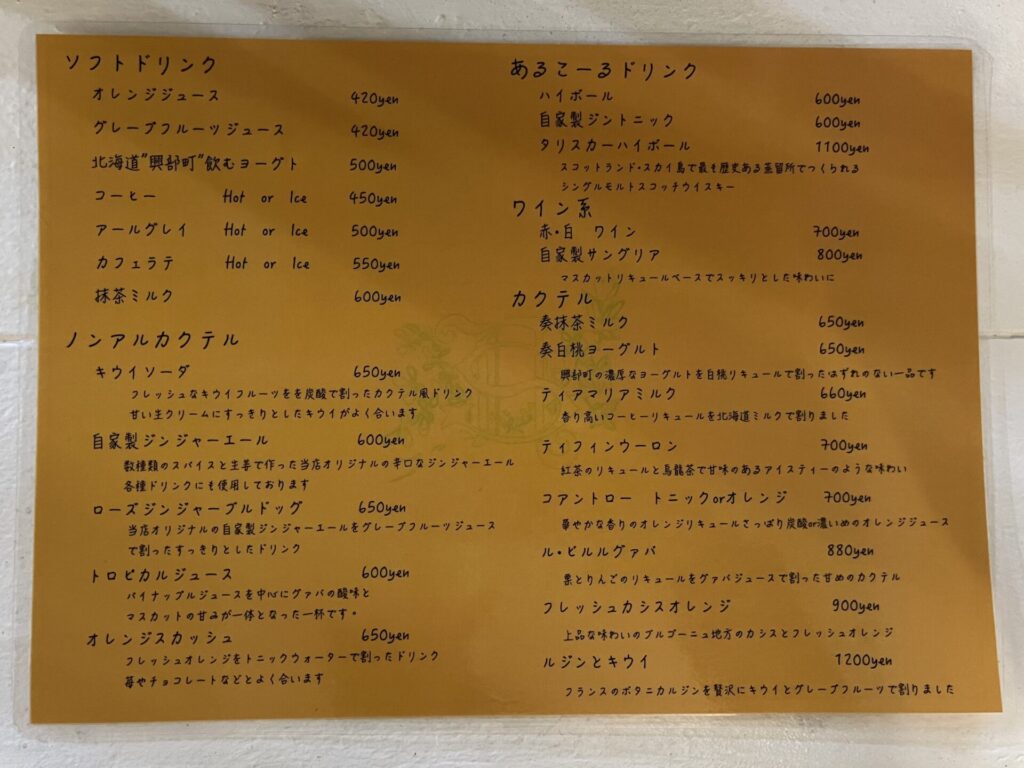 ソフトドリンク
オレンジジュース 420yen
グレープフルーツジュース 420yen
北海道"興部町"飲むヨーグト 500yen
コーヒー Hot or Ice 450yen
アールグレイ Hot or Ice 500yen
カフェラテ Hot or Ice 550yen
抹茶ミルク 600yen
ノンアルカクテル
キウイソーダ 650yen
フレッシュなキウイフルーツをを炭酸で割ったカクテル風ドリンク
甘い生クリームにすっきりとしたキウイがよく合います
自家製ジンジャーエール 600yen
数種類のスパイスと生姜で作った当店オリジナルの辛口なジンジャーエール
各種ドリンクにも使用しております
ローズジンジャーブルドッグ 650yen
当店オリジナルの自家製ジンジャーエールをグレープフルーツジュース
で割ったすっきりとしたドリンク
トロピカルジュース 600yen
パイナップルジュースを中心にグァバの酸味と
マスカットの甘みが一体となった一杯です。
オレンジスカッシュ 650yen
フレッシュオレンジをトニックウォーターで割ったドリンク
苺やチョコレートなどとよく合います
あるこーるドリンク
ハイボール 600yen
自家製ジントニック 600yen
タリスカーハイボール 1100yen
スコットランド・スカイ島で最も歴史ある蒸留所でつくられる
シングルモルトスコッチウイスキー
ワイン系
赤・白 ワイン 700yen
自家製サングリア 800yen
マスカットリキュールベースでスッキリとした味わいに
カクテル
奏抹茶ミルク 650yen
奏白桃ヨーグルト 650yen
興部町の濃厚なヨーグルトを白桃リキュールで割ったはずれのない一品です
ティアマリアミルク 660yen
香り高いコーヒーリキュールを北海道ミルクで割りました
ティフィンウーロン 700yen
紅茶のリキュールと烏龍茶で甘味のあるアイスティーのような味わい
コアントロー トニックorオレンジ 700yen
華やかな香りのオレンジリキュールさっぱり炭酸or濃いめのオレンジジュース
ル・ビルルグァバ 880yen
栗とりんごのリキュールをグァバジュースで割った甘めのカクテル
フレッシュカシスオレンジ 900yen
上品な味わいのブルゴーニュ地方のカシスとフレッシュオレンジ
ルジンとキウイ 1200yen
フランスのボタニカルジンを贅沢にキウイとグレープフルーツで割りました